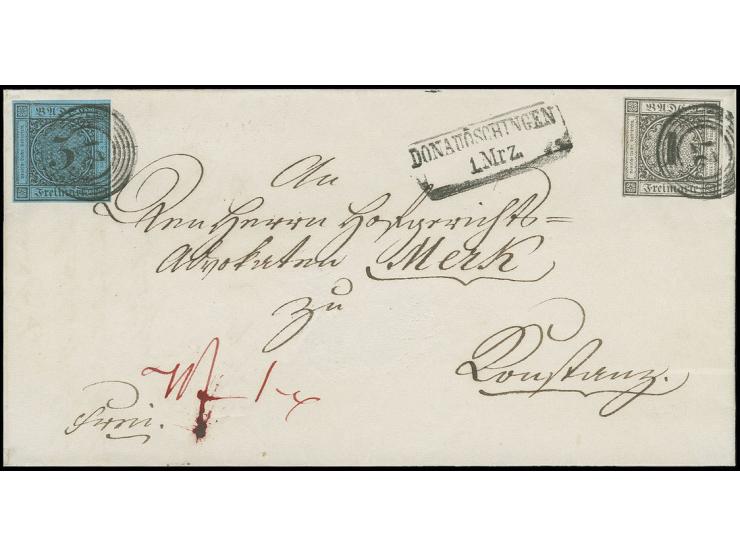 BADEN
3
Freimarke
DONAUÖSCHINGEN
1. Mrz.
BADEN
1
Freimarke
An
Den Herrn Hofgerichts=
Advokaten Merk
zu
Constanz.
frei.